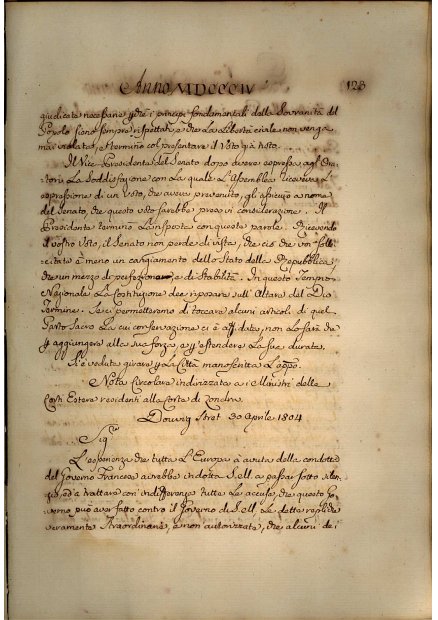 Anno MDCCCIV 123
giudicate necessarie, perche i principj fondamentali della Sovranità del
Popolo sieno sempre rispettati, e che la libertà civile non venga
mai violata, e terminò col presentare il Voto già visto.
Il Vice Presidente del Senato dopo avere espressa agl' Ora-
tori la soddisfazione con la quale l'Assemblea riceveva l'
espressione di un Voto, che aveva prevenuto, gli assicurò a nome
del Senato, che questo Voto sarebbe preso in considerazione. Il
Presidente terminò la risposta con queste parole. Ricevendo
il vostro Voto, il Senato non perde di vista, che ciò che voi solle-
citate è meno un cangiamento dello Stato della Repubblica,
che un mezzo di perfezione, e di Stabilità. In questo Tempio
Nazionale la Costituzione dee riposare sull' Altare del Dio
Termine. Se ci permetteremo di toccare alcuni articoli di quel
Patto Sacro la cui conservazione ci è affidata, non lo sarà che
per aggiungere alla sua forza, e per estendere la sua durata.
S'è veduta girare per la Città manoscritta l'appo.
Nota Circolare indirizzata a i Ministri delle
Corti Estere residenti alla Corte di Londra.
Downig Stret 30 Aprile 1804
Sig.re
L'esperienza che tutta l'Europa à avuta della condotta
del Governo Francese avrebbe indotta S.M. a passar sotto silen-
zio, ed a trattare con indifferenza tutte le accuse, che questo Go-
verno può aver fatto contro il Governo di S.M. Le dette repliche
veramente straordinarie, e non autorizzate, che alcuni de i